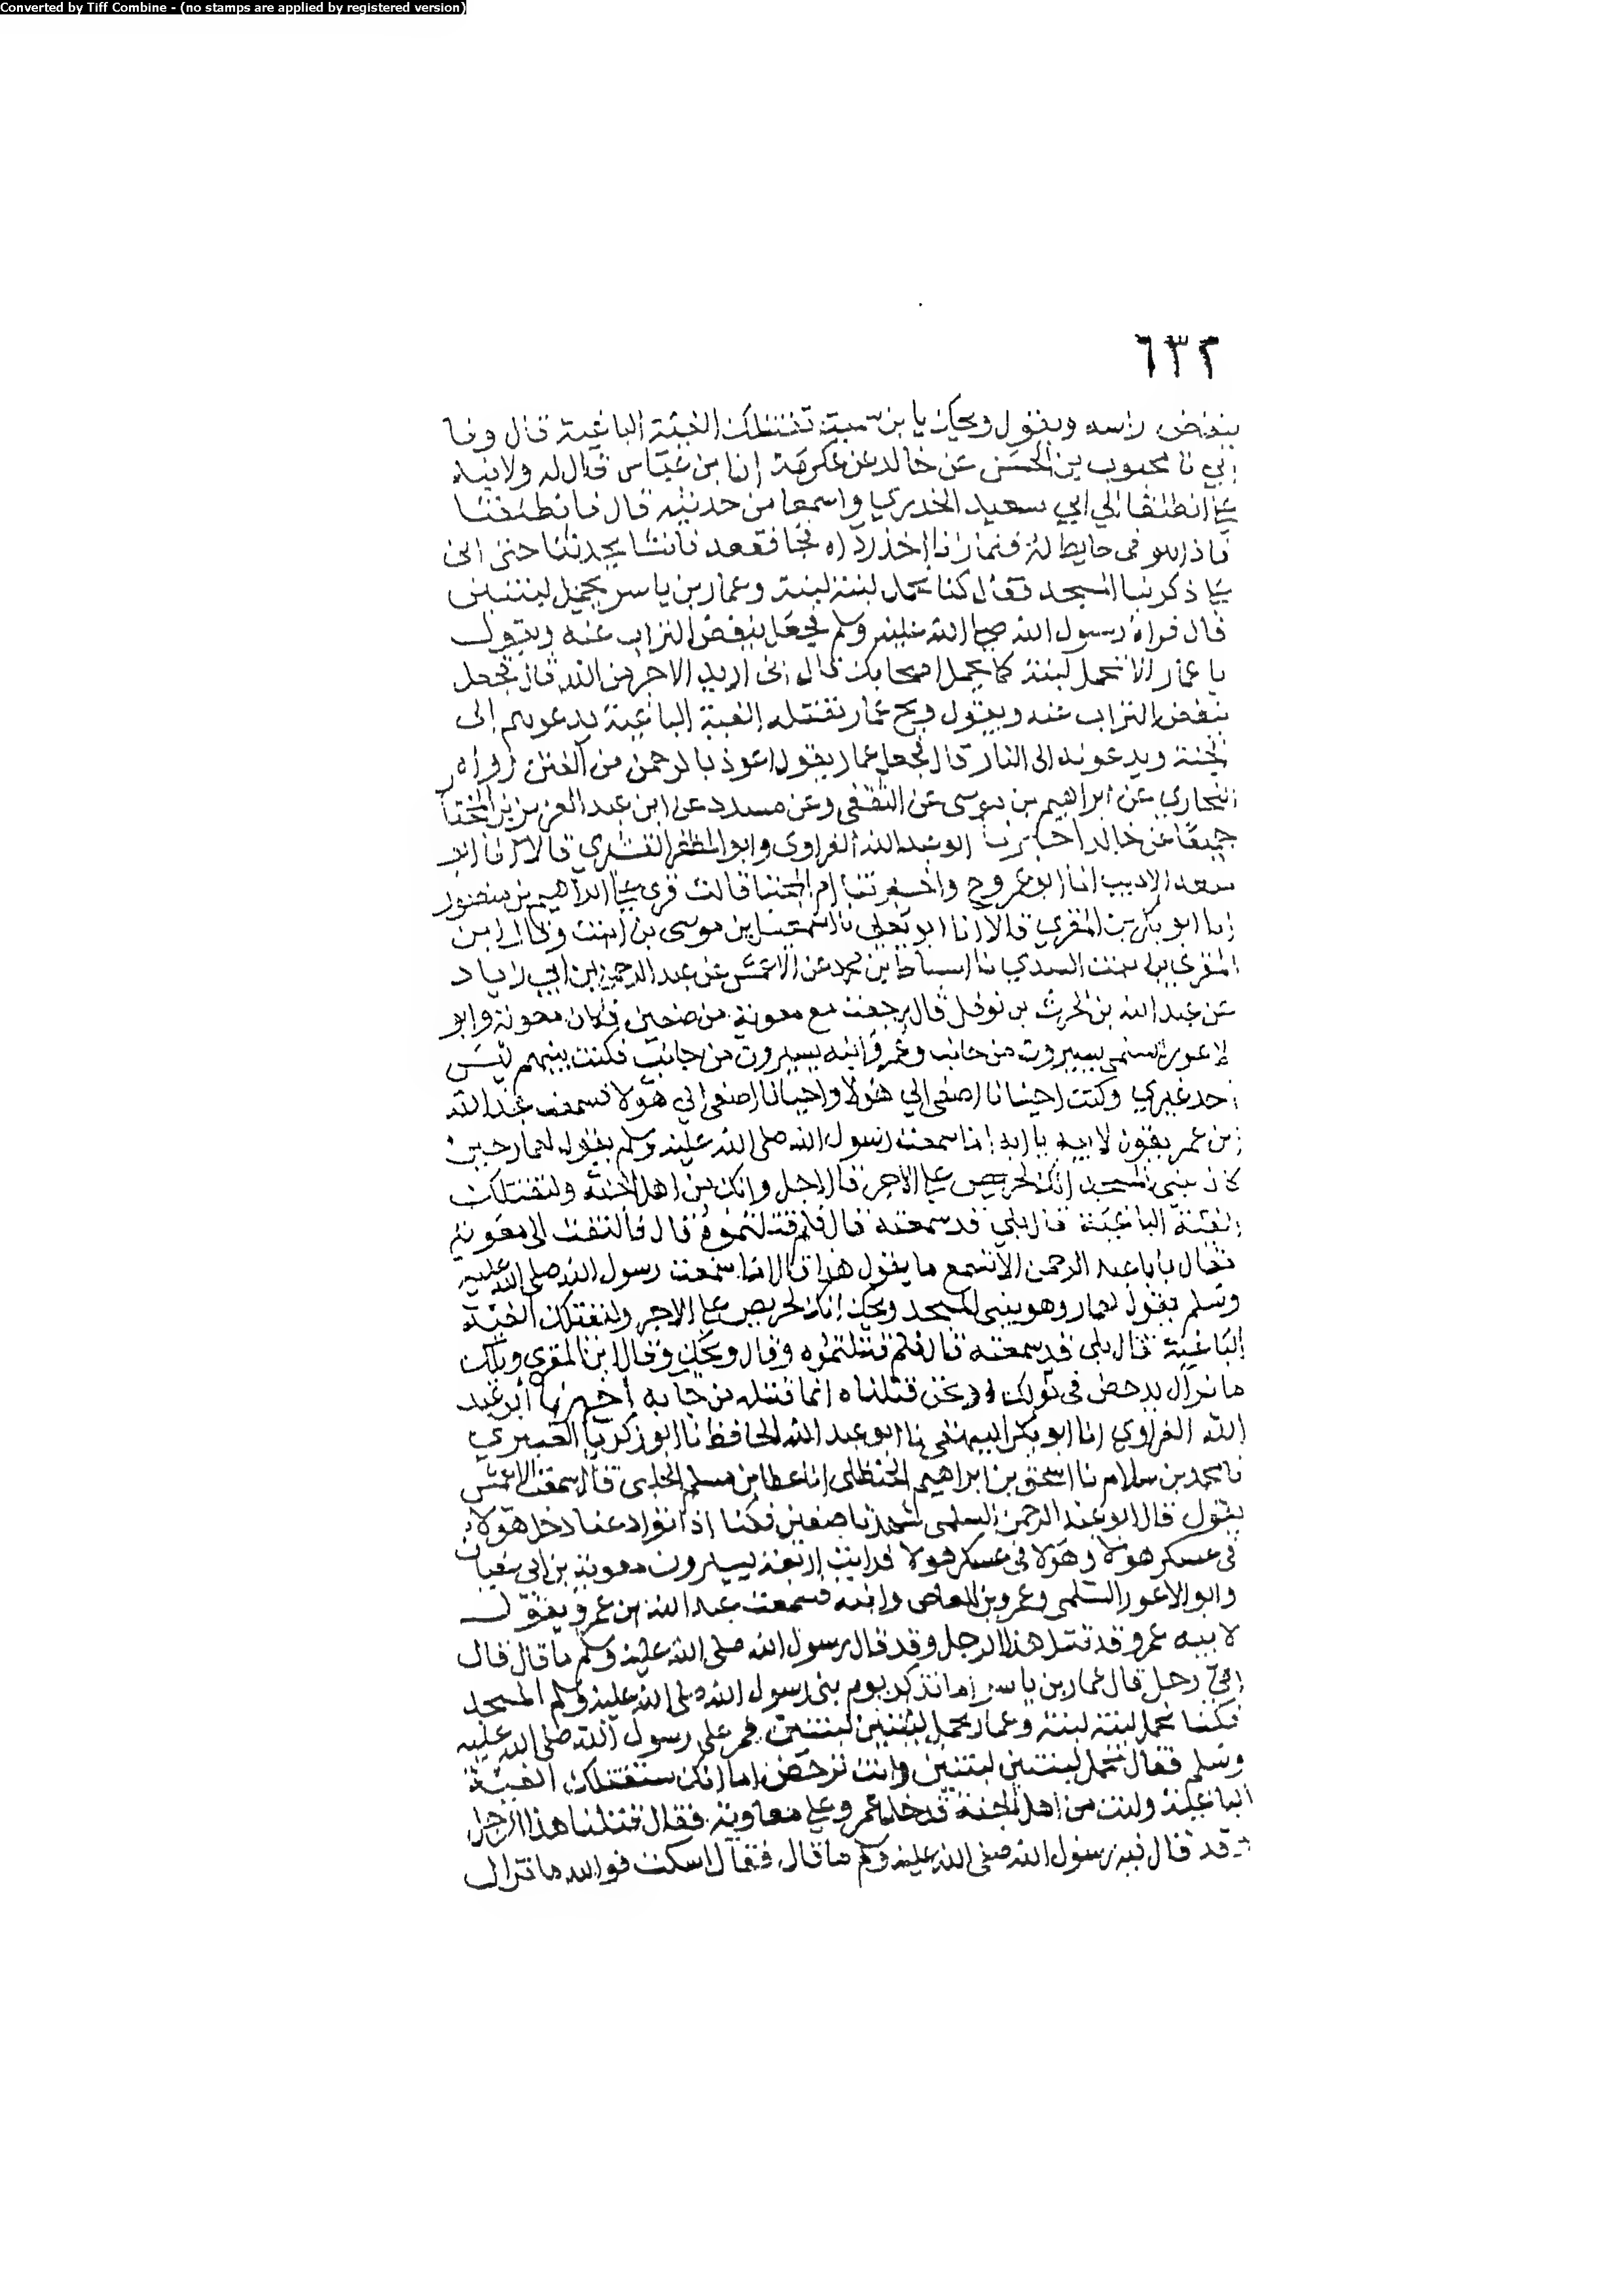 Converted by Tiff Combine - (no stamps are applied by registered version)
٦٣٢
ينفض راسه ويقول ويحك يا بن سمية تقتلك الفئة الباغية قال ونا
ابي نا محبوب بن الحسن عن خالد عن عكرمة ان ابن عباس قال له ولابنه
علي انطلقا الي ابي سعيد الخدري واسمعا من حديثه قال فانطلقنا
فاذا هو في حايط له فلما رانا اخذ رداه فجا فقعد فانشا يحدثنا حتى اتى
علي ذكر بنا المسجد فقال كنا نحمل لبنة لبنة وعمار بن ياسر يحمل لبنتين
قال فراه رسول الله صلى الله عليه وسلم فجعل ينفض التراب عنه ويقول
يا عمار الا تحمل لبنة كما يحمل اصحابك قال اني اريد الاجر من الله قال فجعل
ينفض التراب عنه ويقول ويح عمار تقتله الفية الباغية يدعوهم إلى
الجنة ويدعونه الى النار قال فجعل عمار يقول اعوذ بالرحمن من الفتن رواه
البخاري عن ابراهيم بن موسى عن الثقفي وعن مسدد عن ابن عبد العزيز بن المختار
جميعا عن خالد اخبرنا ابو عبد الله الفراوي وابو المظفر القشيري قالا انا ابو
سعد الاديب انا ابو عمرو ح واخبرتنا ام المجتبا قالت قري علي ابراهيم بن منصور
انا ابو بكر بن المقري قالا انا ابو يعلى نا اسمعيل بن موسى بن ابنت وقال ابن
المقري بن بنت السدي نا اسباط بن محمد عن الاعمش عن عبد الرحمن بن ابي زياد
عن عبد الله بن الحرث بن نوفل قال رجعت مع معوية من صفين فكان معوية وابو
الاعور السلمي يسيرون من جانب وعمرو وابنه يسيرون من جانب فكنت بينهم ليس
احد غيري وكنت احيانا اصغى الي هولا واحيانا اصغى الي هولا فسمعت عبد الله
بن عمر يقول لابيه يا ابه اما سمعت رسول الله صلى الله عليه وسلم يقول لعمار حين
كان يبني المسجد انك لحريص علي الاجر قال اجل وانك من اهل الجنة ولتقتلك
الفئة الباغية قال بلى قد سمعته قال فلم قتلتموه قال فالتفت الى معوية
فقال يا با عبد الرحمن الا تسمع ما يقول هذا قال اما سمعت رسول الله صلى الله عليه
وسلم يقول لعمار وهو يبني المسجد ويحك انك لحريص علي الاجر ولتقتلك الفئة
الباغية قال بلى قد سمعته قال فلم قتلتموه وقال ويحك وقال ابن المقري ويلك
ما تزال تدحض في بولك او نحن قتلناه انما قتله من جا به اخبرنا ابو عبد
الله الفراوي انا ابو بكر البيهقي نا ابو عبد الله الحافظ نا ابو زكريا العنبري
نا محمد بن سلام نا اسحق بن ابراهيم الحنظلي انا عطا بن مسلم الحلبي قال سمعت الاعمش
يقول قال ابو عبد الرحمن السلمي شهدنا صفين فكنا اذا توادعنا دخل هولا
في عسكر هولا وهولا في عسكر هولا فرايت اربعة يسيرون معوية بن ابي سفيان
وابو الاعور السلمي وعمرو بن العاص وابنه فسمعت عبد الله بن عمرو يقول
لابيه عمرو قد قتلنا هذا الرجل وقد قال رسول الله صلى الله عليه وسلم ما قال قال
اي رجل قال عمار بن ياسر اما تذكر يوم بنى رسول الله صلى الله عليه وسلم المسجد
فكنا نحمل لبنة لبنة وعمار يحمل لبنتين لبنتين فمر على رسول الله صلى الله عليه
وسلم فقال تحمل لبنتين لبنتين وانت ترحض اما انك ستقتلك الفئة
الباغية وانت من اهل الجنة فدخل عمرو علي معاوية فقال قتلنا هذا الرجل
وقد قال فيه رسول الله صلى الله عليه وسلم ما قال فقال اسكت فوالله ما تزال